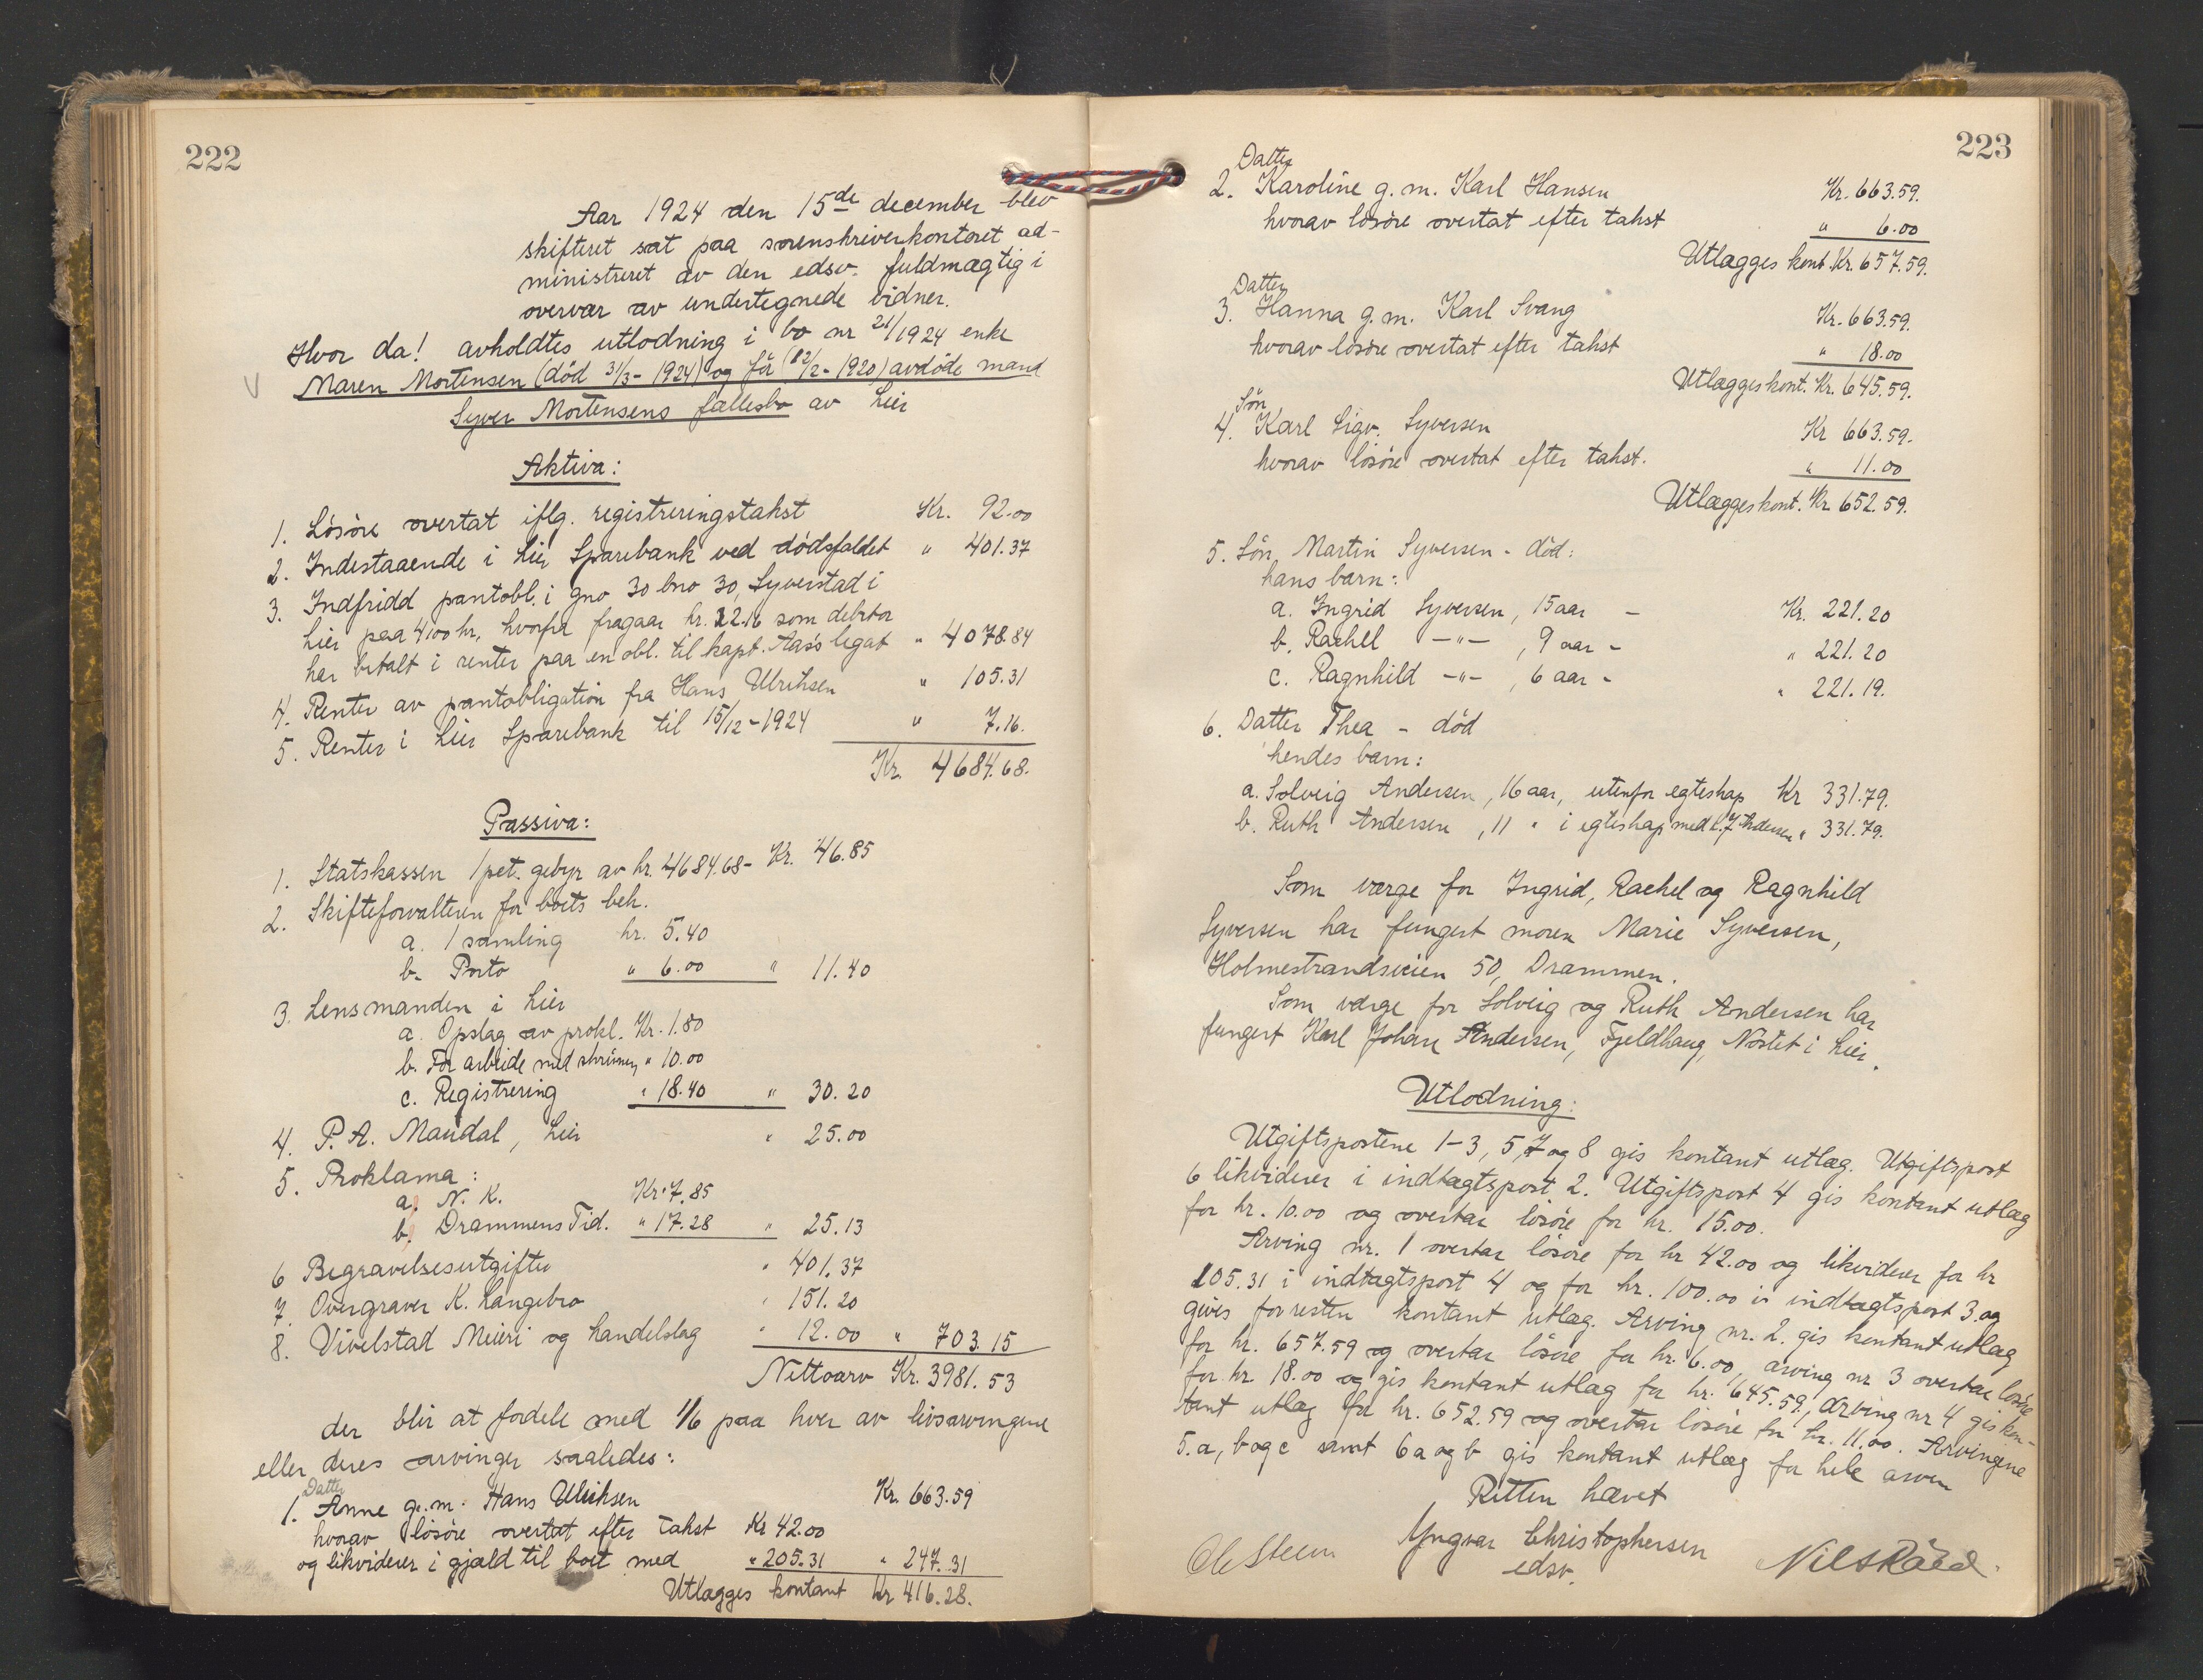 222
Aar 1924 den 15de december blev
skifteret sat paa sorenskriverkontoret ad-
ministreret av den edsv. fuldmægtig i
overvær av undertegnede vidner.
Hvor da! avholdtes utlodning i bo nr 21/1924 enke
Maren Mortensen (död 31/3 - 1924) og før (12/2 - 1920) avdöde mand
Syver Mortensens fællesbo av Lier
Aktiva:
1. Lösöre overtat iflg. registreringstakst Kr. 92.00
2. Indestaaende i Lier Sparebank ved dödsfaldet " 401.37
3. Indfridd pantobl. i gno 30 bno 30, Syverstad i
Lier paa 4100 kr, hvorfra fragaar kr. 22.16 som debitor
har betalt i renter paa en obl. til kapt. Aas's legat " 4078.84
4. Renter av pantobligation fra Hans Ulriksen " 105.31
5. Renter i Lier Sparebank til 15/12 - 1924 " 7.16.
Kr. 4684.68.
Passiva:
1. Statskassen 1 pct. gebyr av kr. 4684.68- Kr. 46.85
2. Skifteforvalteren for boets beh.
a. 1 samling kr. 5.40
b. Porto " 6.00 " 11.40
3. Lensmanden i Lier
a. Opslag av prokl. Kr. 1.80
b. For arbeide med skrivning " 10.00
c. Registrering " 18.40 " 30.20
4. P. A. Mandal, Lier " 25.00
5. Proklama:
a. N. K. Kr. 7.85
b. Drammens Tid. " 17.28 " 25.13
6 Begravelsesutgifter " 401.37
7. Overgraver K. Langebro " 151.20
8. Vivelstad Meieri og handelslag " 12.00 " 703.15
Nettoarv Kr. 3981.53
der blir at fordele med 1/6 paa hver av livsarvingene
eller deres arvinger saaledes:
Datter
1. Anne g. m. Hans Ulriksen Kr. 663.59
hvorav lösöre overtat efter takst Kr 42.00
og likviderer i gjæld til boet med " 205.31 " 247.31
Utlægges kontant Kr 416.28.
223
Datter
2. Karoline g. m. Karl Hansen Kr. 663.59.
hvorav lösöre overtat efter takst " 6.00
Utlægges kont. Kr. 657.59.
Datter
3. Hanna g. m. Karl Svang Kr. 663.59.
hvorav lösöre overtat efter takst " 18.00
Utlægges kont. Kr. 645.59.
Sön
4. Karl Sigv. Syversen Kr 663.59.
hvorav lösöre overtat efter takst. " 11.00
Utlægges kont. Kr. 652.59.
5. Sön, Martin Syversen - död:
hans barn:
a. Ingrid Syversen, 15 aar - Kr. 221.20
b. Rachel -"- , 9 aar - " 221.20
c. Ragnhild -"- , 6 aar - " 221.19.
6. Datter Thea - död
hendes barn:
a. Solveig Andersen, 16 aar, utenfor egteskap Kr 331.79.
b. Ruth Andersen, 11 " i egteskap med K. J. Andersen " 331.79.
Som verge for Ingrid, Rachel og Ragnhild
Syversen har fungert moren Marie Syversen,
Holmestrandsveien 50, Drammen.
Som verge for Solveig og Ruth Andersen har
fungert Karl Johan Andersen, Fjeldhaug, Nöstet i Lier.
Utlodning:
Utgiftspostene 1-3, 5, 7 og 8 gis kontant utlæg. Utgiftspost
6 likviderer i indtægtspost 2. Utgiftspost 4 gis kontant utlæg
for kr. 10.00 og overtar lösöre for kr. 15.00.
Arving nr. 1 overtar lösöre for kr 42.00 og likviderer for kr
105.31 i indtægtspost 4 og for kr. 100.00 i indtægtspost 3 og
gives forresten kontant utlæg. Arving nr. 2. gis kontant utlæg
for kr. 657.59 og overtar lösöre for kr. 6.00, arving nr 3 overtar lösöre
for kr. 18.00 og gis kontant utlæg for kr. 645.59, Arving nr 4 gis kon-
tant utlæg for kr. 652.59 og overtar lösöre for kr. 11.00. Arvingene
5. a, b og c samt 6 a og b gis kontant utlæg for hele arven
Retten hævet
Yngvar Christophersen
edsv.
Ole Steen
Nils Råed.